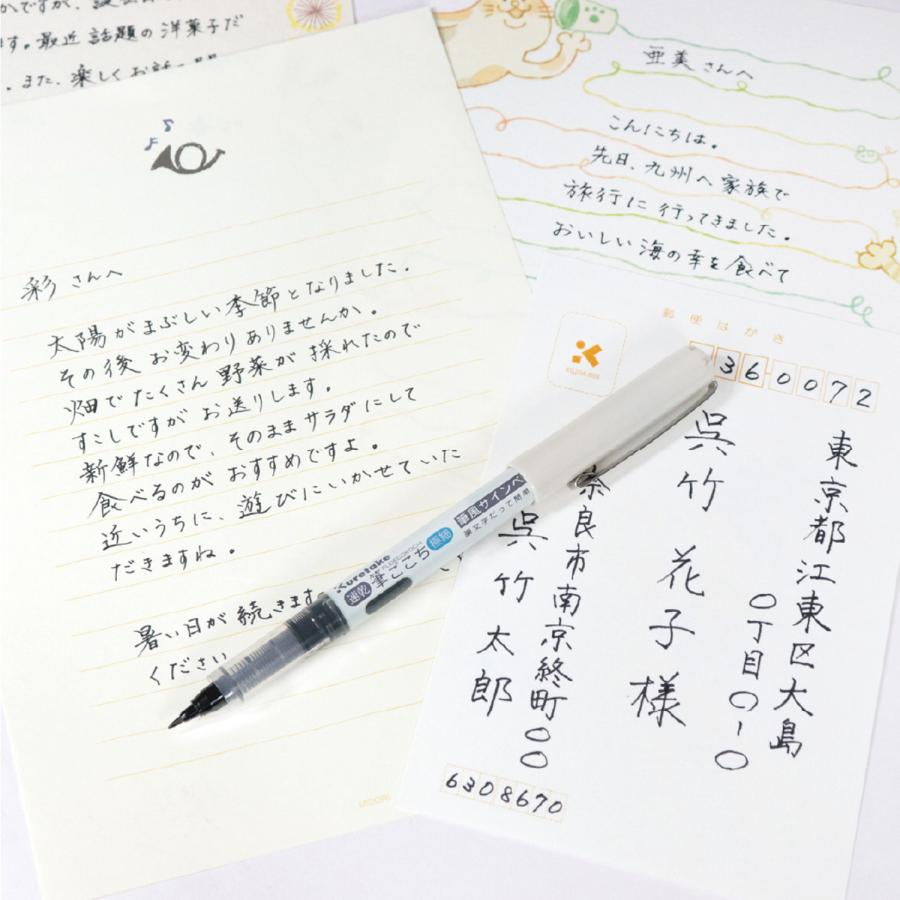 かですが、
ます。最近話題の洋菓子だ
。また、楽しくお話
彩さんへ
太陽がまぶしい季節となりました。
その後お変わりありませんか。
畑でたくさん野菜が採れたので
すこしですがお送りします。
新鮮なので、そのままサラダにして
食べるのがおすすめですよ。
近いうちに、遊びにいかせていた
だきますね。
暑い日が続きます
ください
MIDORI
亜美さんへ
こんにちは。
先日、九州へ家族で
旅行に行ってきました。
おいしい海の幸を食べて
郵便はがき
360072
東京都江東区大島
〇丁目〇-〇
呉竹 花子様
奈良市南京終町〇〇
呉竹 太郎
6308670
Kuretake
速乾 筆ごこち 極細
筆風サインペ
筆文字だって簡単